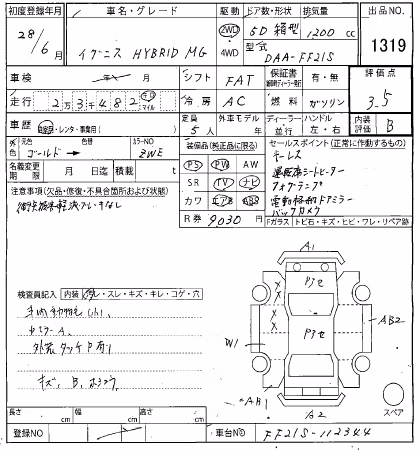 初度登録年月 車名・グレード 駆動 ドア数・形状 排気量 出品NO.
28/6月 イグニス HYBRID MG 2WD 4WD 5D 箱型 1200 cc 1319
型式 DAA-FF21S
車検 年 月 シフト FAT 保証書 有・無 評価点 3.5
走行 2万3千482 キロ マイル 冷房 AC 燃料 ガソリン
車歴 自家用・レンタ・事業用( ) 定員 5人 外車モデル ディーラー 並行 ハンドル 左・右 内装評価 B
外色 元色 色替 カラーNO
ゴールド → ZWE
装備品(純正品に限る)
セールスポイント(正常に作動するもの)
名義変更期限 月 日迄 積載 t
PS PW AW
SR TV ナビ
カワ エアB ABS
R券 9030円
キーレス
運転席シートヒーター
フォグランプ
電動格納ドアミラー
バックカメラ
注意事項(欠品・修復・不具合箇所および状態)
Fガラス トビ石・キズ・ヒビ・ワレ・リペア跡
検査員記入 内装 ヨゴレ・スレ・キズ・キレ・コゲ・穴
外装タッチP有り
キズ、B、
A1
Pアセ
Pアセ
W1
AB2
AB1
A2
スペア
長さ cm 幅 cm 高さ cm
登録NO 車台NO FF21S-112344